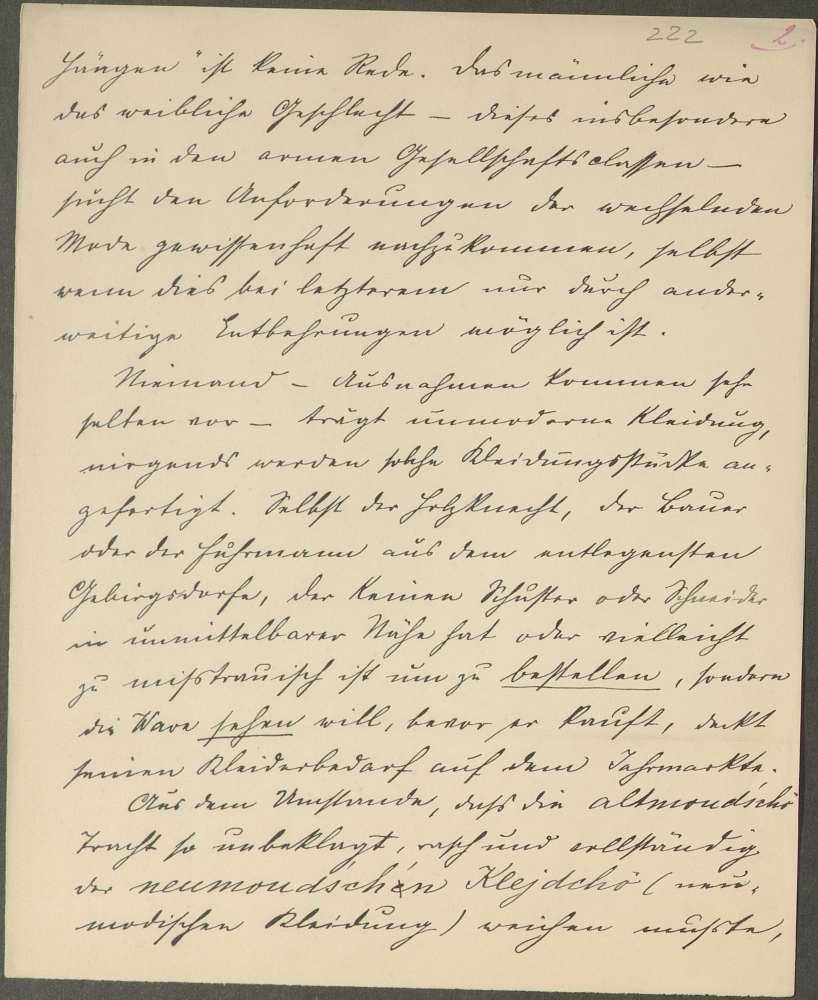 222 2.
hängen" ist keine Rede. Das männliche wie
das weibliche Geschlecht – dieses insbesondere
auch in den armen Gesellschaftsclassen –
sucht den Anforderungen der wechselnden
Mode gewissenhaft nachzukommen, selbst
wenn dies bei letzterem nur durch ander-
weitige Entbehrungen möglich ist.
Niemand – Ausnahmen kommen sehr
selten vor – trägt unmoderne Kleidung,
nirgends werden solche Kleidungsstücke an-
gefertigt. Selbst der Holzknecht, der Bauer
oder der Fuhrmann aus dem entlegensten
Gebirgsdorfe, der keinen Schuster oder Schneider
in unmittelbarer Nähe hat oder vielleicht
zu misstrauisch ist um zu bestellen, sondern
die Ware sehen will, bevor er kauft, deckt
seinen Kleiderbedarf auf dem Jahrmarkte.
Aus dem Umstande, dass die altmoud'schö
Tracht so unbeklagt, rasch und vollständig
der neumoud'schen Klejdchö (neu-
modischen Kleidung) weichen musste,